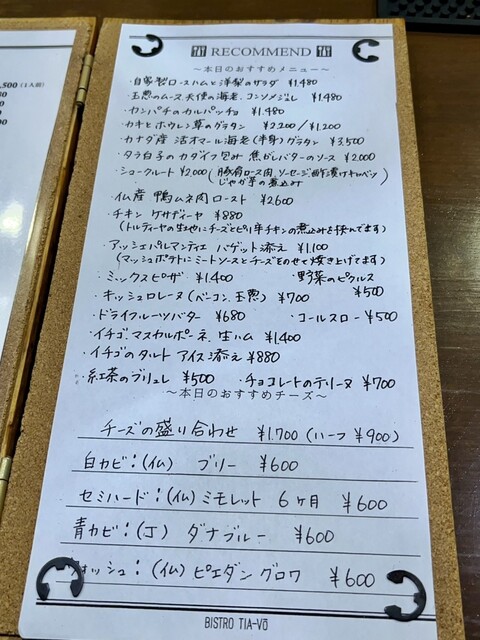 ,500 (1人前)
RECOMMEND
～本日のおすすめメニュー～
・自家製ロースハムと洋梨のサラダ ¥1.480
・玉葱のムース 天使の海老、コンソメジュレ ¥1.480
・カンパチのカルパッチョ ¥1.480
・カキとホウレン草のグラタン ¥2.200/¥1.200
・カナダ産 活オマール海老(半身)グラタン ¥3,500
・タラ白子のカダイフ包み 焦がしバターのソース ¥2.000
・シュークルート ¥2.000 (豚肩ロース肉、ソーセージ、酢漬けキャベツ
じゃが芋の煮込み)
・仏産 鴨ムネ肉ロースト ¥2600
・チキン ケサディーヤ ¥880
(トルティーヤの生地にチーズとピリ辛チキンの煮込みを挟んでます)
・アッシェパルマンティエ バゲット添え ¥1.100
(マッシュポテトにミートソースとチーズをのせて焼き上げてます)
・ミックスピザ ¥1.400 ・野菜のピクルス
¥500
・キッシュロレーヌ(ベーコン、玉葱) ¥700
・ドライフルーツバター ¥680 ・コールスロー ¥500
・イチゴ マスカルポーネ、生ハム ¥1400
・イチゴのタルト アイス添え ¥880
・紅茶のブリュレ ¥500 ・チョコレートのテリーヌ ¥700
～本日のおすすめチーズ～
チーズの盛り合わせ ¥1.700 (ハーフ ¥900)
白カビ:(仏) ブリー ¥600
セミハード:(仏)ミモレット 6ヶ月 ¥600
青カビ:(丁) ダナブルー ¥600
ォッシュ:(仏)ピエダングロワ ¥600
BISTRO TIA-VŌ